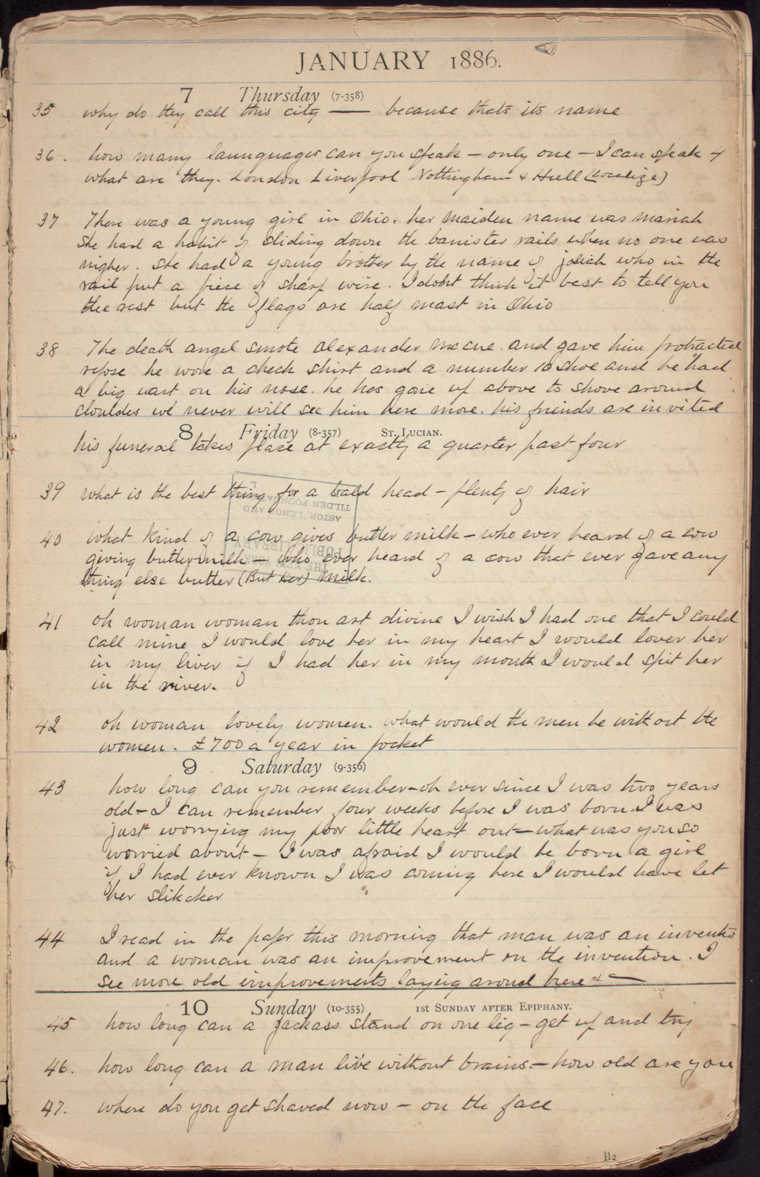 JANUARY 1886.
7 Thursday (7-358)
35 why do they call this city — because thats its name
36. how many launguages can you speak – only one – I can speak 4
what are they. London Liverpool Nottingham & Hull (Localize)
37 There was a young girl in Ohio. her maiden name was mariah
she had a habit of sliding down the banister rails when no one was
nigher. she had a young brother by the name of josiah who in the
rail put a piece of sharp wire. I dont think it best to tell you
the rest but the flags are half mast in Ohio
38 The death angel smote alexander mccue. and gave him protracted
repose he wore a check shirt and a number 10 shoe and he had
a big wart on his nose. he has gone up above to shove around
cloudes we never will see him here more. his friends are invited
8 Friday (8-357) ST. LUCIAN.
his funeral takes place at exactly a quarter past four
39 what is the best thing for a bald head – plenty of hair
ASTOR, LENOX AND
TILDEN FOUNDATIONS
THE NEW YORK
PUBLIC LIBRARY
40 what kind of a cow gives butter milk – who ever heard of a cow
giving buttermilk – who ever heard of a cow that ever gave any
thing else butter (But her) milk.
41 oh woman woman thou art divine I wish I had one that I could
call mine I would love her in my heart I would lover her
in my liver if I had her in my mouth I would spit her
in the river.
42 oh woman lovely women. what would the men be without the
women. £700 a year in pocket
9 Saturday (9-356)
43 how long can you remember – oh ever since I was two years
old – I can remember four weeks before I was born. I was
just worrying my poor little heart out – what was you so
worried about – I was afraid I would be born a girl
if I had ever known I was coming here I would have let
her slikcker
44 I read in the paper this morning that man was an inventio
and a woman was an improvement on the invention. I
see more old improvements laying around here &c
10 Sunday (10-355) 1ST SUNDAY AFTER EPIPHANY.
45 how long can a jackass stand on one leg – get up and try
46. how long can a man live without brains – how old are you
47. where do you get shaved now – on the face
B2